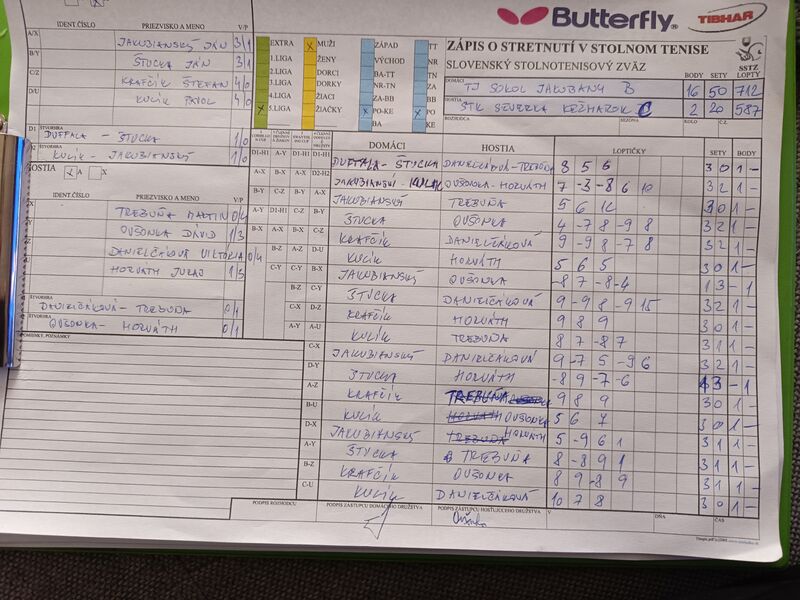 IDENT.ČÍSLO PRIEZVISKO A MENO V/P
A/X JAKUBIANSKÝ JÁN 3/1
B/Y ŠTUCKA JÁN 3/1
C/Z KRAFČÍK ŠTEFAN 4/0
D/U KULÍK PAVOL 4/0
D1 ŠTVORHRA DUFFALA - ŠTUCKA 1/0
ŠTVORHRA KULÍK - JAKUBIANSKÝ 1/0
HOSTIA A X
IDENT.ČÍSLO PRIEZVISKO A MENO V/P
TREBUŇA MARTIN 0/4
OUŠONKA DÁVID 1/3
DANIELČÁKOVÁ VIKTÓRIA 0/4
HORVÁTH JURAJ 1/3
ŠTVORHRA
DANIELČÁKOVÁ - TREBUŇA 0/1
ŠTVORHRA
OUŠONKA - HORVÁTH 0/1
POMIENKY, POZNÁMKY
EXTRA
1.LIGA
2.LIGA
3.LIGA
4.LIGA
X 5.LIGA
X MUŽI
ŽENY
DORCI
DORKY
ŽIACI
ŽIAČKY
ZÁPAD
VÝCHOD
BA-TT
NR-TN
ZA-BB
PO-KE
BA
TT
NR
TN
ZA
BB
PO
KE
Butterfly
TIBHAR
ZÁPIS O STRETNUTÍ V STOLNOM TENISE
SLOVENSKÝ STOLNOTENISOVÝ ZVÄZ
SSTZ
BODY SETY LOPTY
DOMÁCI TJ SOKOL JAKUBANY B 16 50 712
HOSTIA STK SEVERKA KEŽMAROK C 2 20 587
ROZHODCA SEZÓNA KOLO Č.Z.
DOMÁCI HOSTIA LOPTIČKY SETY BODY
D1-H1 A-Y D1-H1 D1-H1 DUFFALA - ŠTUCKA DANIELČÁKOVÁ - TREBUŇA 8 5 6 3 0 1 -
A-X B-X A-X D2-H2 JAKUBIANSKÝ - KULÍK OUŠONKA - HORVÁTH 7 -3 -8 6 10 3 2 1 -
B-Y C-Z B-Y A-X JAKUBIANSKÝ TREBUŇA 5 6 12 3 0 1 -
A-Y D1-H1 C-Z B-Y ŠTUCKA OUŠONKA 4 -7 8 -9 8 3 2 1 -
B-X A-X B-X C-Z KRAFČÍK DANIELČÁKOVÁ 9 -9 8 -7 8 3 2 1 -
C-Z A-Z D-U KULÍK HORVÁTH 5 6 5 3 0 1 -
C-Y C-Y B-X JAKUBIANSKÝ OUŠONKA -8 7 -8 -4 1 3 - 1
B-Z C-Y ŠTUCKA DANIELČÁKOVÁ 9 -9 8 -9 15 3 2 1 -
C-X D-Z KRAFČÍK HORVÁTH 9 8 9 3 0 1 -
A-Y A-U KULÍK TREBUŇA 8 7 -8 7 3 1 1 -
C-X JAKUBIANSKÝ DANIELČÁKOVÁ 9 -7 5 -9 6 3 2 1 -
D-Y ŠTUCKA HORVÁTH -8 9 -7 -6 1 3 - 1
A-Z KRAFČÍK TREBUŇA 9 8 9 3 0 1 -
B-U KULÍK OUŠONKA 5 6 7 3 0 1 -
D-X JAKUBIANSKÝ HORVÁTH 5 -9 6 1 3 1 1 -
A-Y ŠTUCKA TREBUŇA 8 -8 9 1 3 1 1 -
B-Z KRAFČÍK OUŠONKA 8 9 -8 9 3 1 1 -
C-U KULÍK DANIELČÁKOVÁ 10 7 8 3 0 1 -
PODPIS ROZHODCU PODPIS ZÁSTUPCU DOMÁCEHO DRUŽSTVA PODPIS ZÁSTUPCU HOSŤUJÚCEHO DRUŽSTVA V DŇA ČAS
Oušonka